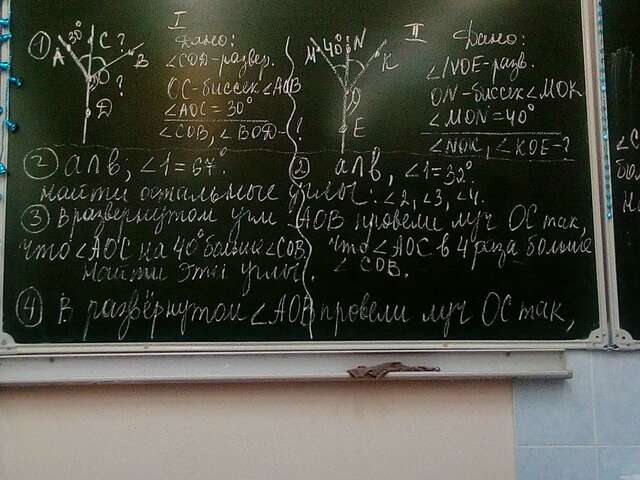 I
① 30° A C ? B O ? D
Дано:
∠COD-развер.
OC-биссек ∠AOB
∠AOC = 30°
∠COB, ∠BOD-?
II
M 40° N K O E
Дано:
∠NOE-разв.
ON-биссек ∠MOK
∠MON = 40°
∠NOK, ∠KOE-?
② a∩b; ∠1 = 57°.
② a∩b, ∠1 = 32°
найти остальные углы: ∠2, ∠3, ∠4.
③ В развернутом угл AOB провели луч OC так,
что ∠AOC на 40° больше ∠COB.
найти эти углы.
что ∠AOC в 4 раза больше
∠COB.
④ В развёрнутом ∠AOB провели луч OC так,